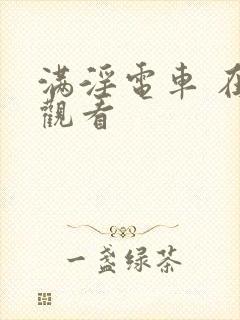 满淫電車 在
觀看
一盏绿茶